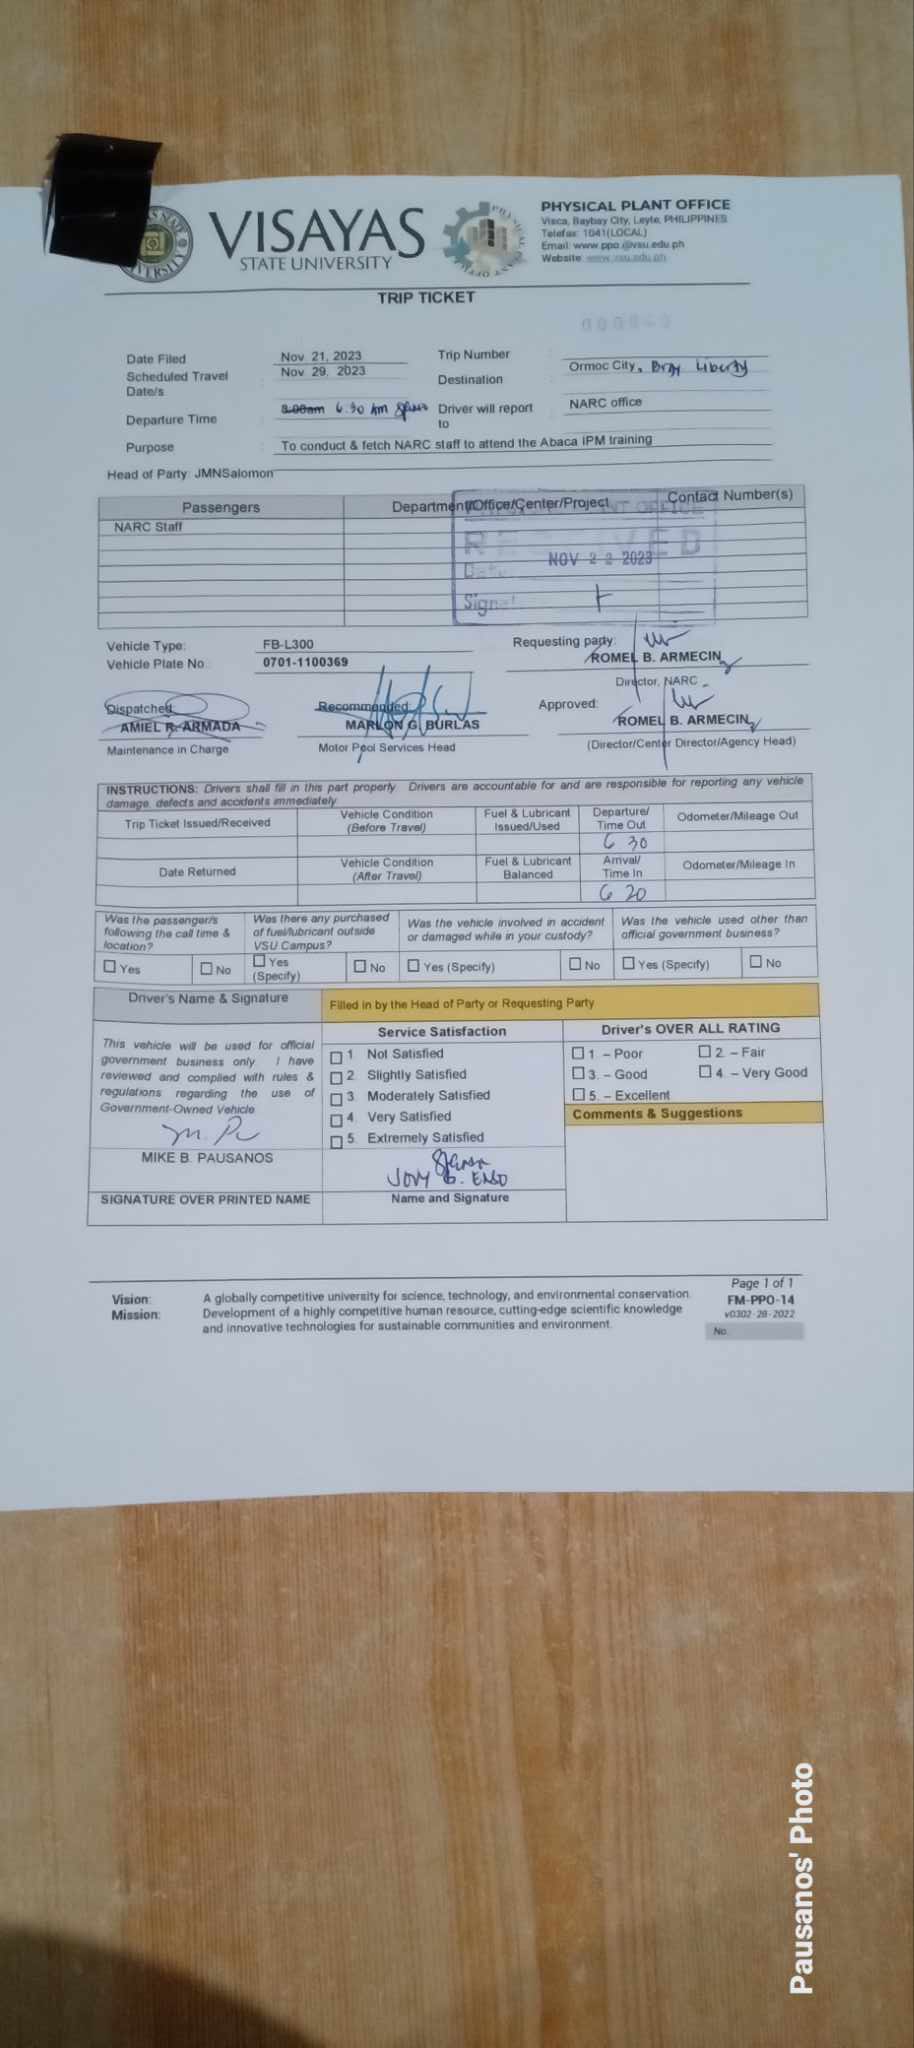 VISAYAS
STATE UNIVERSITY
PHYSICAL PLANT OFFICE
Visca, Baybay City, Leyte, PHILIPPINES
Telefax: 1041(LOCAL)
Email: www.ppo.@vsu.edu.ph
Website: www.vsu.edu.ph
TRIP TICKET
Date Filed : Nov. 21, 2023
Trip Number :
Scheduled Travel Date/s : Nov 29. 2023
Destination : Ormoc City, Brgy Liberty
Departure Time : 8:00am 6:30 Am
Driver will report to : NARC office
Purpose : To conduct & fetch NARC staff to attend the Abaca IPM training
Head of Party: JMNSalomon
Passengers Department/Office/Center/Project Contact Number(s)
NARC Staff
RECEIVED
Date: NOV 22 2023
Vehicle Type: FB-L300
Vehicle Plate No. 0701-1100369
Requesting party:
ROMEL B. ARMECIN
Director, NARC
Dispatched:
AMIEL R. ARMADA
Maintenance in Charge
Recommended:
MARLON G. BURLAS
Motor Pool Services Head
Approved:
ROMEL B. ARMECIN
(Director/Center Director/Agency Head)
INSTRUCTIONS: Drivers shall fill in this part properly. Drivers are accountable for and are responsible for reporting any vehicle
damage, defects and accidents immediately
Trip Ticket Issued/Received Vehicle Condition (Before Travel) Fuel & Lubricant Issued/Used Departure/ Time Out Odometer/Mileage Out
6 30
Date Returned Vehicle Condition (After Travel) Fuel & Lubricant Balanced Arrival/ Time In Odometer/Mileage In
6 20
Was the passenger/s following the call time & location?
Was there any purchased of fuel/lubricant outside VSU Campus?
Was the vehicle involved in accident or damaged while in your custody?
Was the vehicle used other than official government business?
Yes No Yes (Specify) No Yes (Specify) No Yes (Specify) No
Driver's Name & Signature
Filled in by the Head of Party or Requesting Party
This vehicle will be used for official
government business only. I have
reviewed and complied with rules &
regulations regarding the use of
Government-Owned Vehicle
MIKE B. PAUSANOS
SIGNATURE OVER PRINTED NAME
Service Satisfaction
1. Not Satisfied
2. Slightly Satisfied
3. Moderately Satisfied
4. Very Satisfied
5. Extremely Satisfied
Name and Signature
Driver's OVER ALL RATING
1. – Poor 2. – Fair
3. – Good 4. – Very Good
5. – Excellent
Comments & Suggestions
Vision: A globally competitive university for science, technology, and environmental conservation.
Mission: Development of a highly competitive human resource, cutting-edge scientific knowledge
and innovative technologies for sustainable communities and environment.
Page 1 of 1
FM-PPO-14
v0302-28-2022
No.
Pausanos' Photo